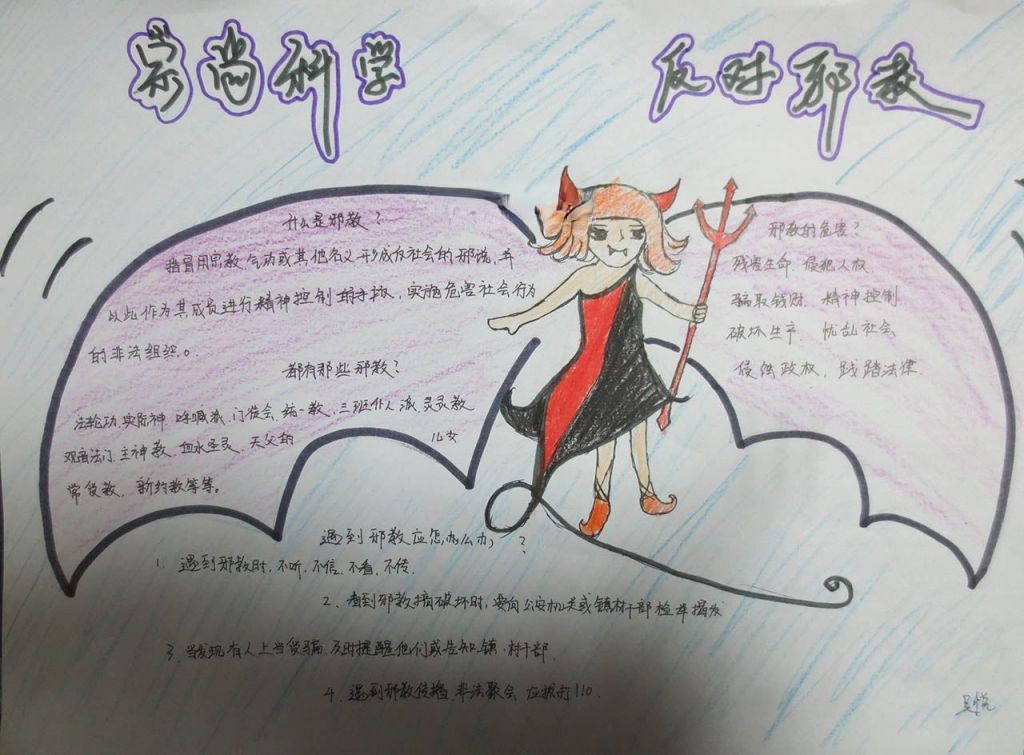 崇尚科学
反对邪教
什么是邪教？
指冒用宗教、气功或其他名义形成反社会的邪说，并
以此作为其成员进行精神控制 手段，实施危害社会行为
的非法组织。
都有那些邪教？
法轮功、实际神、呼喊派、门徒会、统一教、三班仆人派、灵灵教
观音法门、主神教、血水圣灵、天父的 儿女
常受教、新约教等等。
邪教的危害？
残害生命、侵犯人权、
骗取钱财、精神控制
破坏生产、扰乱社会
侵蚀政权、践踏法律.
遇到邪教应怎么办？
1. 遇到邪教时，不听、不信、不看、不传.
2. 看到邪教搞破坏时，要向公安机关或镇村干部检举揭发
3. 当发现有人上当受骗、及时提醒他们或告知镇、村干部.
4. 遇到邪教传播、非法聚会 应拨打110.